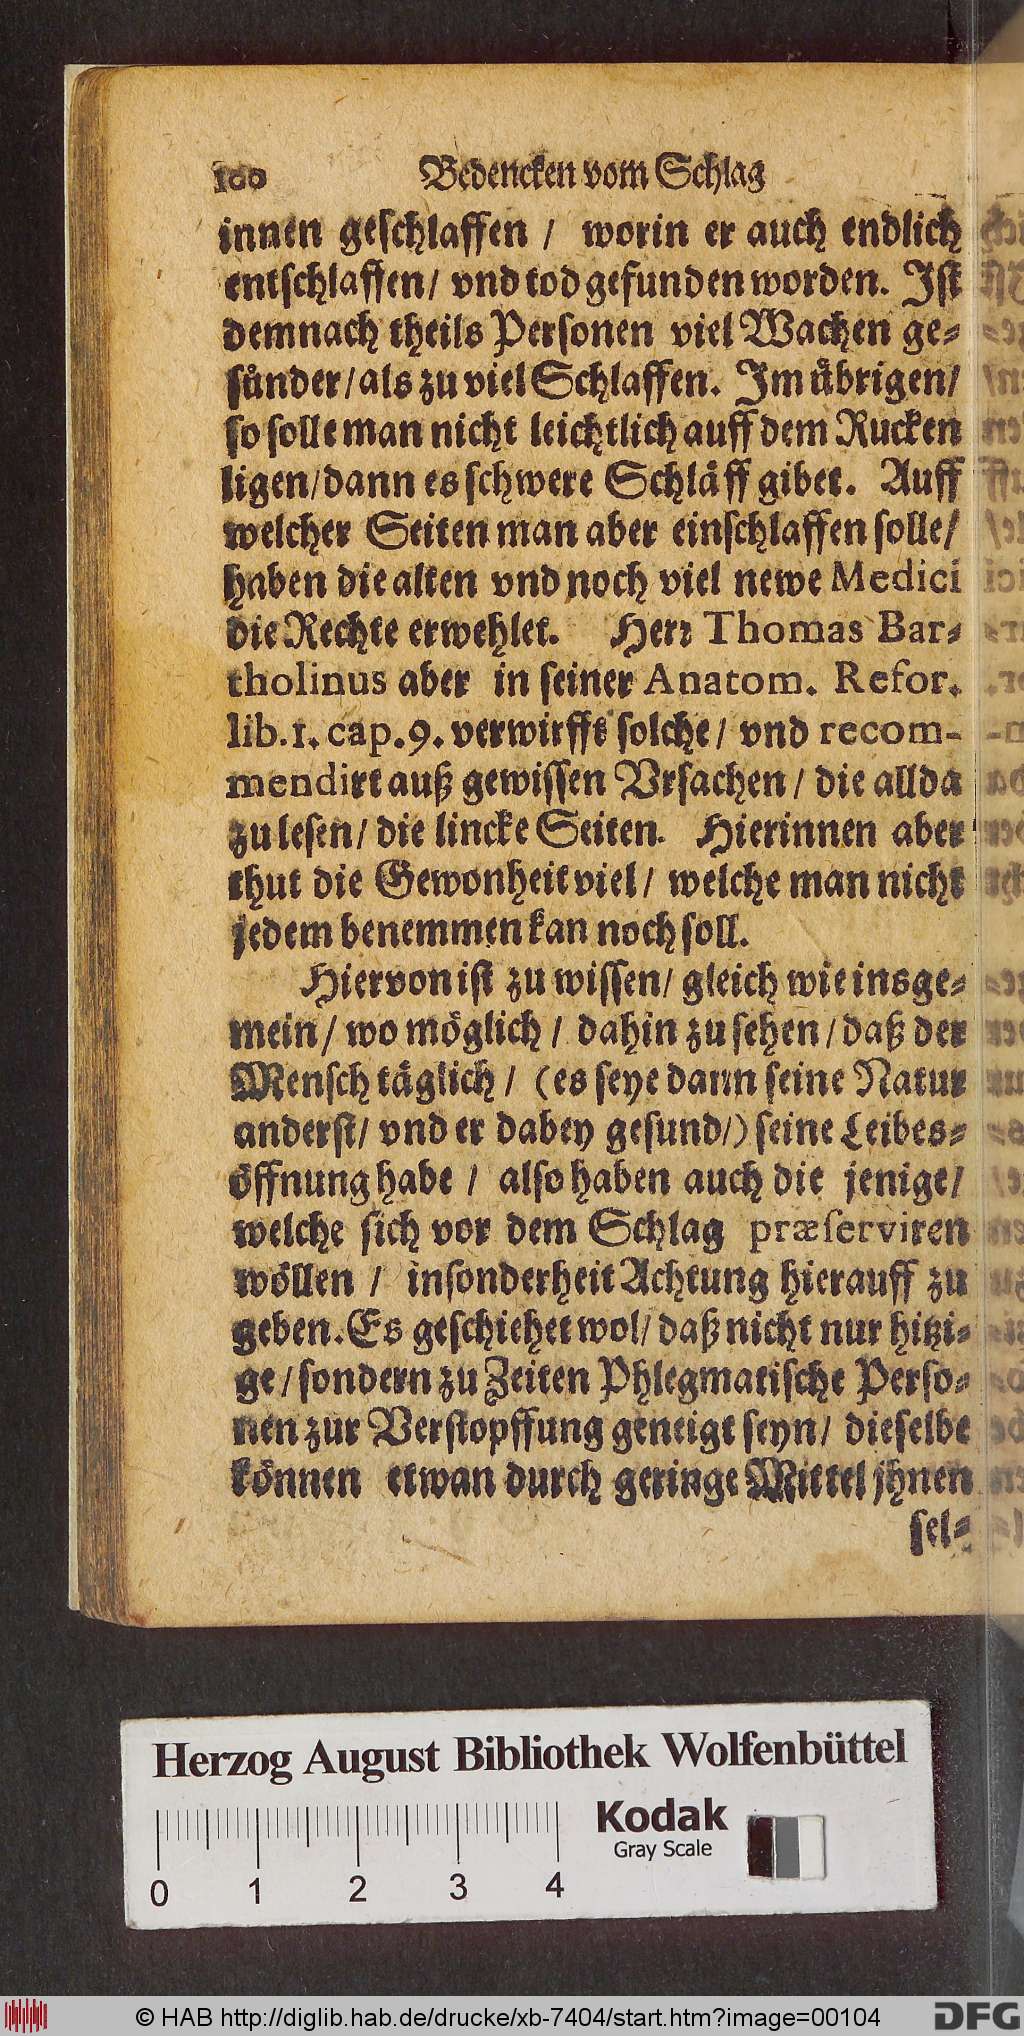 100 Bedencken vom Schlag
innen geschlaffen / worin er auch endlich
entschlaffen/ vnd tod gefunden worden. Ist
demnach theils Personen viel Wachen ge-
sünder/ als zu viel Schlaffen. Im übrigen/
so solle man nicht leichtlich auff dem Rucken
ligen/ dann es schwere Schläff gibet. Auff
welcher Seiten man aber einschlaffen solle/
haben die alten vnd noch viel newe Medici
die Rechte erwehlet. Herr Thomas Bar-
tholinus aber in seiner Anatom. Refor.
lib. 1. cap. 9. verwirfft solche/ vnd recom-
mendirt auß gewissen Vrsachen/ die allda
zu lesen/ die lincke Seiten. Hierinnen aber
thut die Gewonheit viel/ welche man nicht
jedem benemmen kan noch soll.
Hiervon ist zu wissen/ gleich wie insge-
mein/ wo möglich / dahin zu sehen/ daß der
Mensch täglich / (es seye dann seine Natur
anderst/ vnd er dabey gesund/) seine Leibes-
öffnung habe / also haben auch die jenige/
welche sich vor dem Schlag præserviren
wöllen / insonderheit Achtung hierauff zu
geben. Es geschiehet wol/ daß nicht nur hitzi-
ge/ sondern zu Zeiten Phlegmatische Perso-
nen zur Verstopffung geneigt seyn/ dieselbe
können etwan durch geringe Mittel jhnen
sel-
Herzog August Bibliothek Wolfenbüttel
Kodak
Gray Scale
0 1 2 3 4
© HAB http://diglib.hab.de/drucke/xb-7404/start.htm?image=00104
DFG